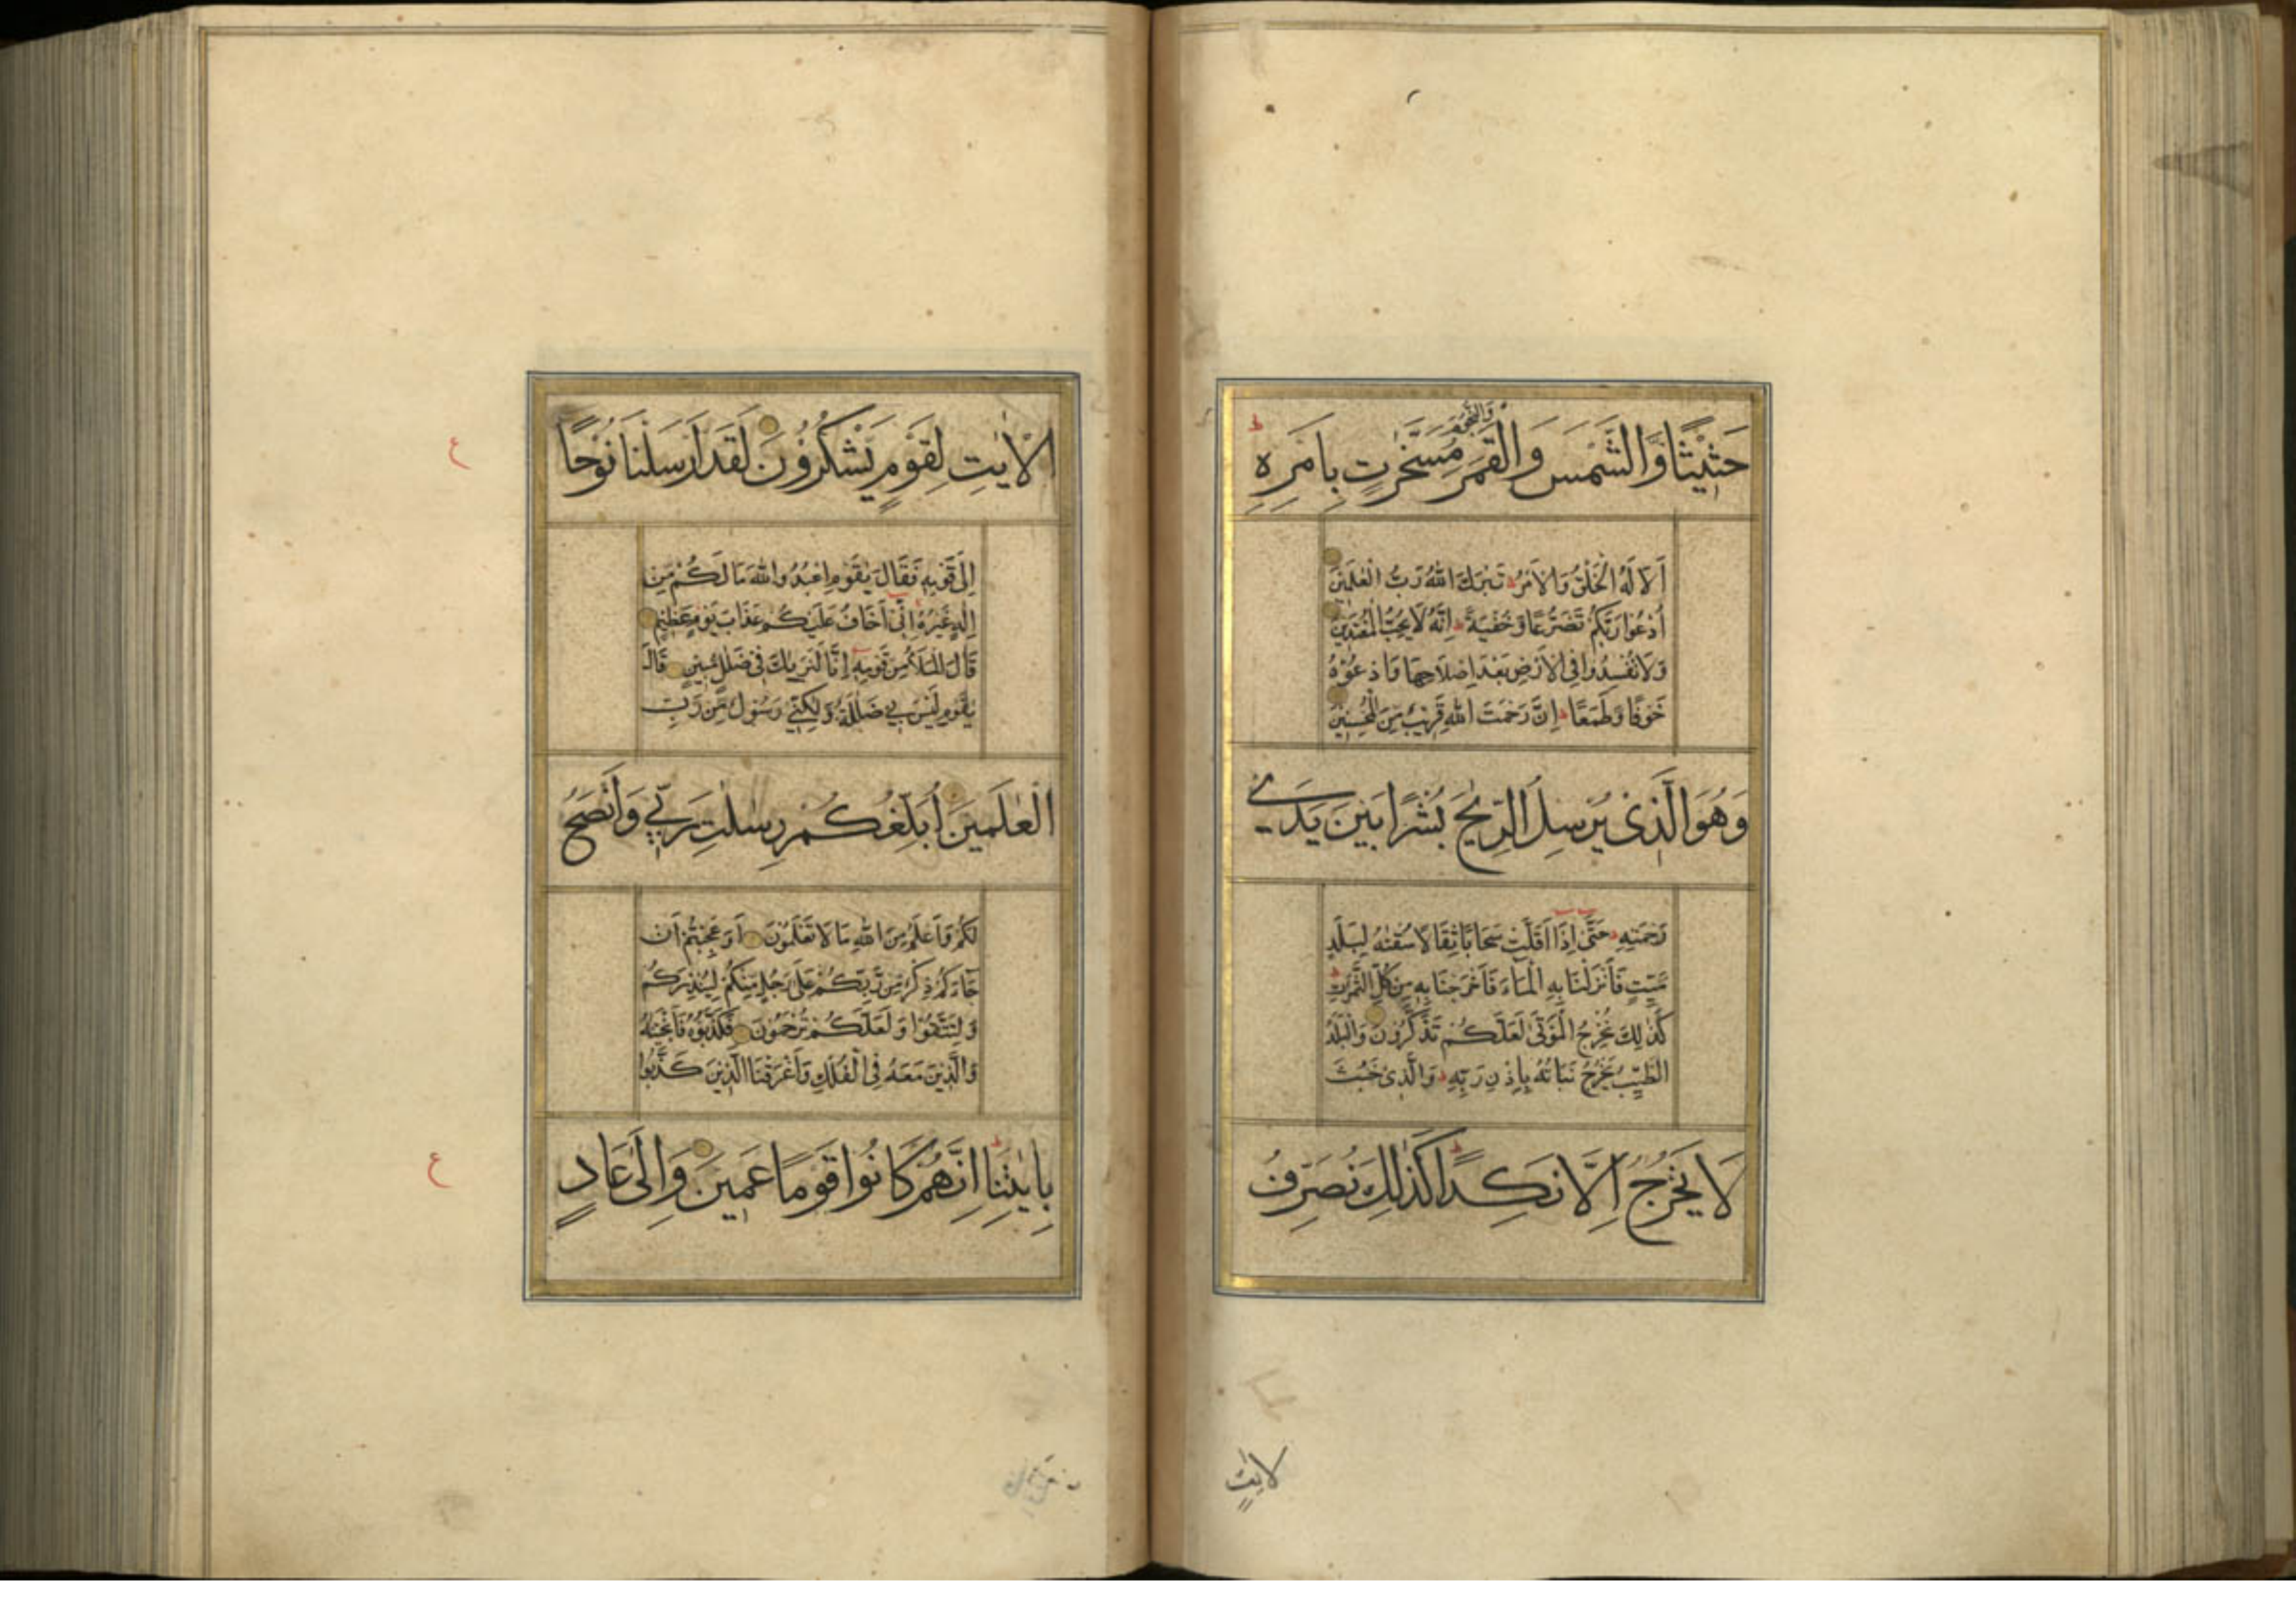 حَثِيْثًا وَّالشَّمْسَ وَالْقَمَرَ وَالنُّجُوْمَ مُسَخَّرٰتٍ بِاَمْرِهٖ ط
اَلَا لَهُ الْخَلْقُ وَالْاَمْرُ ط تَبٰرَكَ اللّٰهُ رَبُّ الْعٰلَمِيْنَ
اُدْعُوْا رَبَّكُمْ تَضَرُّعًا وَّخُفْيَةً ط اِنَّهٗ لَا يُحِبُّ الْمُعْتَدِيْنَ
وَلَا تُفْسِدُوْا فِى الْاَرْضِ بَعْدَ اِصْلَاحِهَا وَادْعُوْهُ
خَوْفًا وَّطَمَعًا ط اِنَّ رَحْمَتَ اللّٰهِ قَرِيْبٌ مِّنَ الْمُحْسِنِيْنَ
وَهُوَ الَّذِىْ يُرْسِلُ الرِّيٰحَ بُشْرًا بَيْنَ يَدَىْ
رَحْمَتِهٖ ط حَتّٰى اِذَا اَقَلَّتْ سَحَابًا ثِقَالًا سُقْنٰهُ لِبَلَدٍ
مَّيِّتٍ فَاَنْزَلْنَا بِهِ الْمَآءَ فَاَخْرَجْنَا بِهٖ مِنْ كُلِّ الثَّمَرٰتِ ط
كَذٰلِكَ نُخْرِجُ الْمَوْتٰى لَعَلَّكُمْ تَذَكَّرُوْنَ وَالْبَلَدُ
الطَّيِّبُ يَخْرُجُ نَبَاتُهٗ بِاِذْنِ رَبِّهٖ ط وَالَّذِىْ خَبُثَ
لَا يَخْرُجُ اِلَّا نَكِدًا ط كَذٰلِكَ نُصَرِّفُ
لايٰتٍ
الْاٰيٰتِ لِقَوْمٍ يَّشْكُرُوْنَ لَقَدْ اَرْسَلْنَا نُوْحًا
ع
اِلٰى قَوْمِهٖ فَقَالَ يٰقَوْمِ اعْبُدُوا اللّٰهَ مَا لَكُمْ مِّنْ
اِلٰهٍ غَيْرُهٗ اِنِّىْ اَخَافُ عَلَيْكُمْ عَذَابَ يَوْمٍ عَظِيْمٍ
قَالَ الْمَلَاُ مِنْ قَوْمِهٖ اِنَّا لَنَرٰىكَ فِىْ ضَلٰلٍ مُّبِيْنٍ قَالَ
يٰقَوْمِ لَيْسَ بِىْ ضَلٰلَةٌ وَّلٰكِنِّىْ رَسُوْلٌ مِّنْ رَّبِّ
الْعٰلَمِيْنَ اُبَلِّغُكُمْ رِسٰلٰتِ رَبِّىْ وَاَنْصَحُ
لَكُمْ وَاَعْلَمُ مِنَ اللّٰهِ مَا لَا تَعْلَمُوْنَ اَوَعَجِبْتُمْ اَنْ
جَآءَكُمْ ذِكْرٌ مِّنْ رَّبِّكُمْ عَلٰى رَجُلٍ مِّنْكُمْ لِيُنْذِرَكُمْ
وَلِتَتَّقُوْا وَلَعَلَّكُمْ تُرْحَمُوْنَ فَكَذَّبُوْهُ فَاَنْجَيْنٰهُ
وَالَّذِيْنَ مَعَهٗ فِى الْفُلْكِ وَاَغْرَقْنَا الَّذِيْنَ كَذَّبُوْا
بِاٰيٰتِنَا ط اِنَّهُمْ كَانُوْا قَوْمًا عَمِيْنَ وَاِلٰى عَادٍ
ع